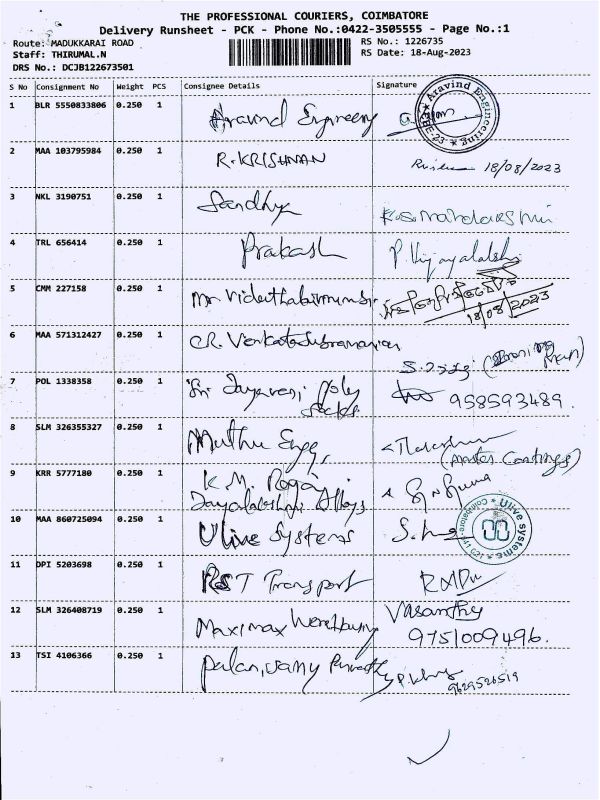 THE PROFESSIONAL COURIERS, COIMBATORE
Delivery Runsheet - PCK - Phone No.:0422-3505555 - Page No.:1
Route: MADUKKARAI ROAD
RS No.: 1226735
Staff: THIRUMAL.N
RS Date: 18-Aug-2023
DRS No.: DCJB122673501
S No Consignment No Weight PCS Consignee Details Signature
1 BLR 5550833806 0.250 1 Aravind Engineering
Aravind Engineering
2 MAA 103795984 0.250 1 R.KRISHNAN 18/08/2023
3 NKL 3190751 0.250 1 Sandhya
4 TRL 656414 0.250 1 Prakash P. Vijayalakshi
5 CMM 227158 0.250 1 Mr
18/08/2023
6 MAA 571312427 0.250 1 CR. Venkatasubramanian
7 POL 1338358 0.250 1 Sri Poly 958593489.
8 SLM 326355327 0.250 1 Muthu Engg,
(Master Castings)
9 KRR 5777180 0.250 1 K.M.
Alloys
10 MAA 860725094 0.250 1 Ulive Systems
Ulive systems
Coimbatore-641 021
11 DPI 5203698 0.250 1 RST Transport
12 SLM 326408719 0.250 1 Maximax Vasanthy
9751009496.
13 TSI 4106366 0.250 1 Palanisamy
9629526519